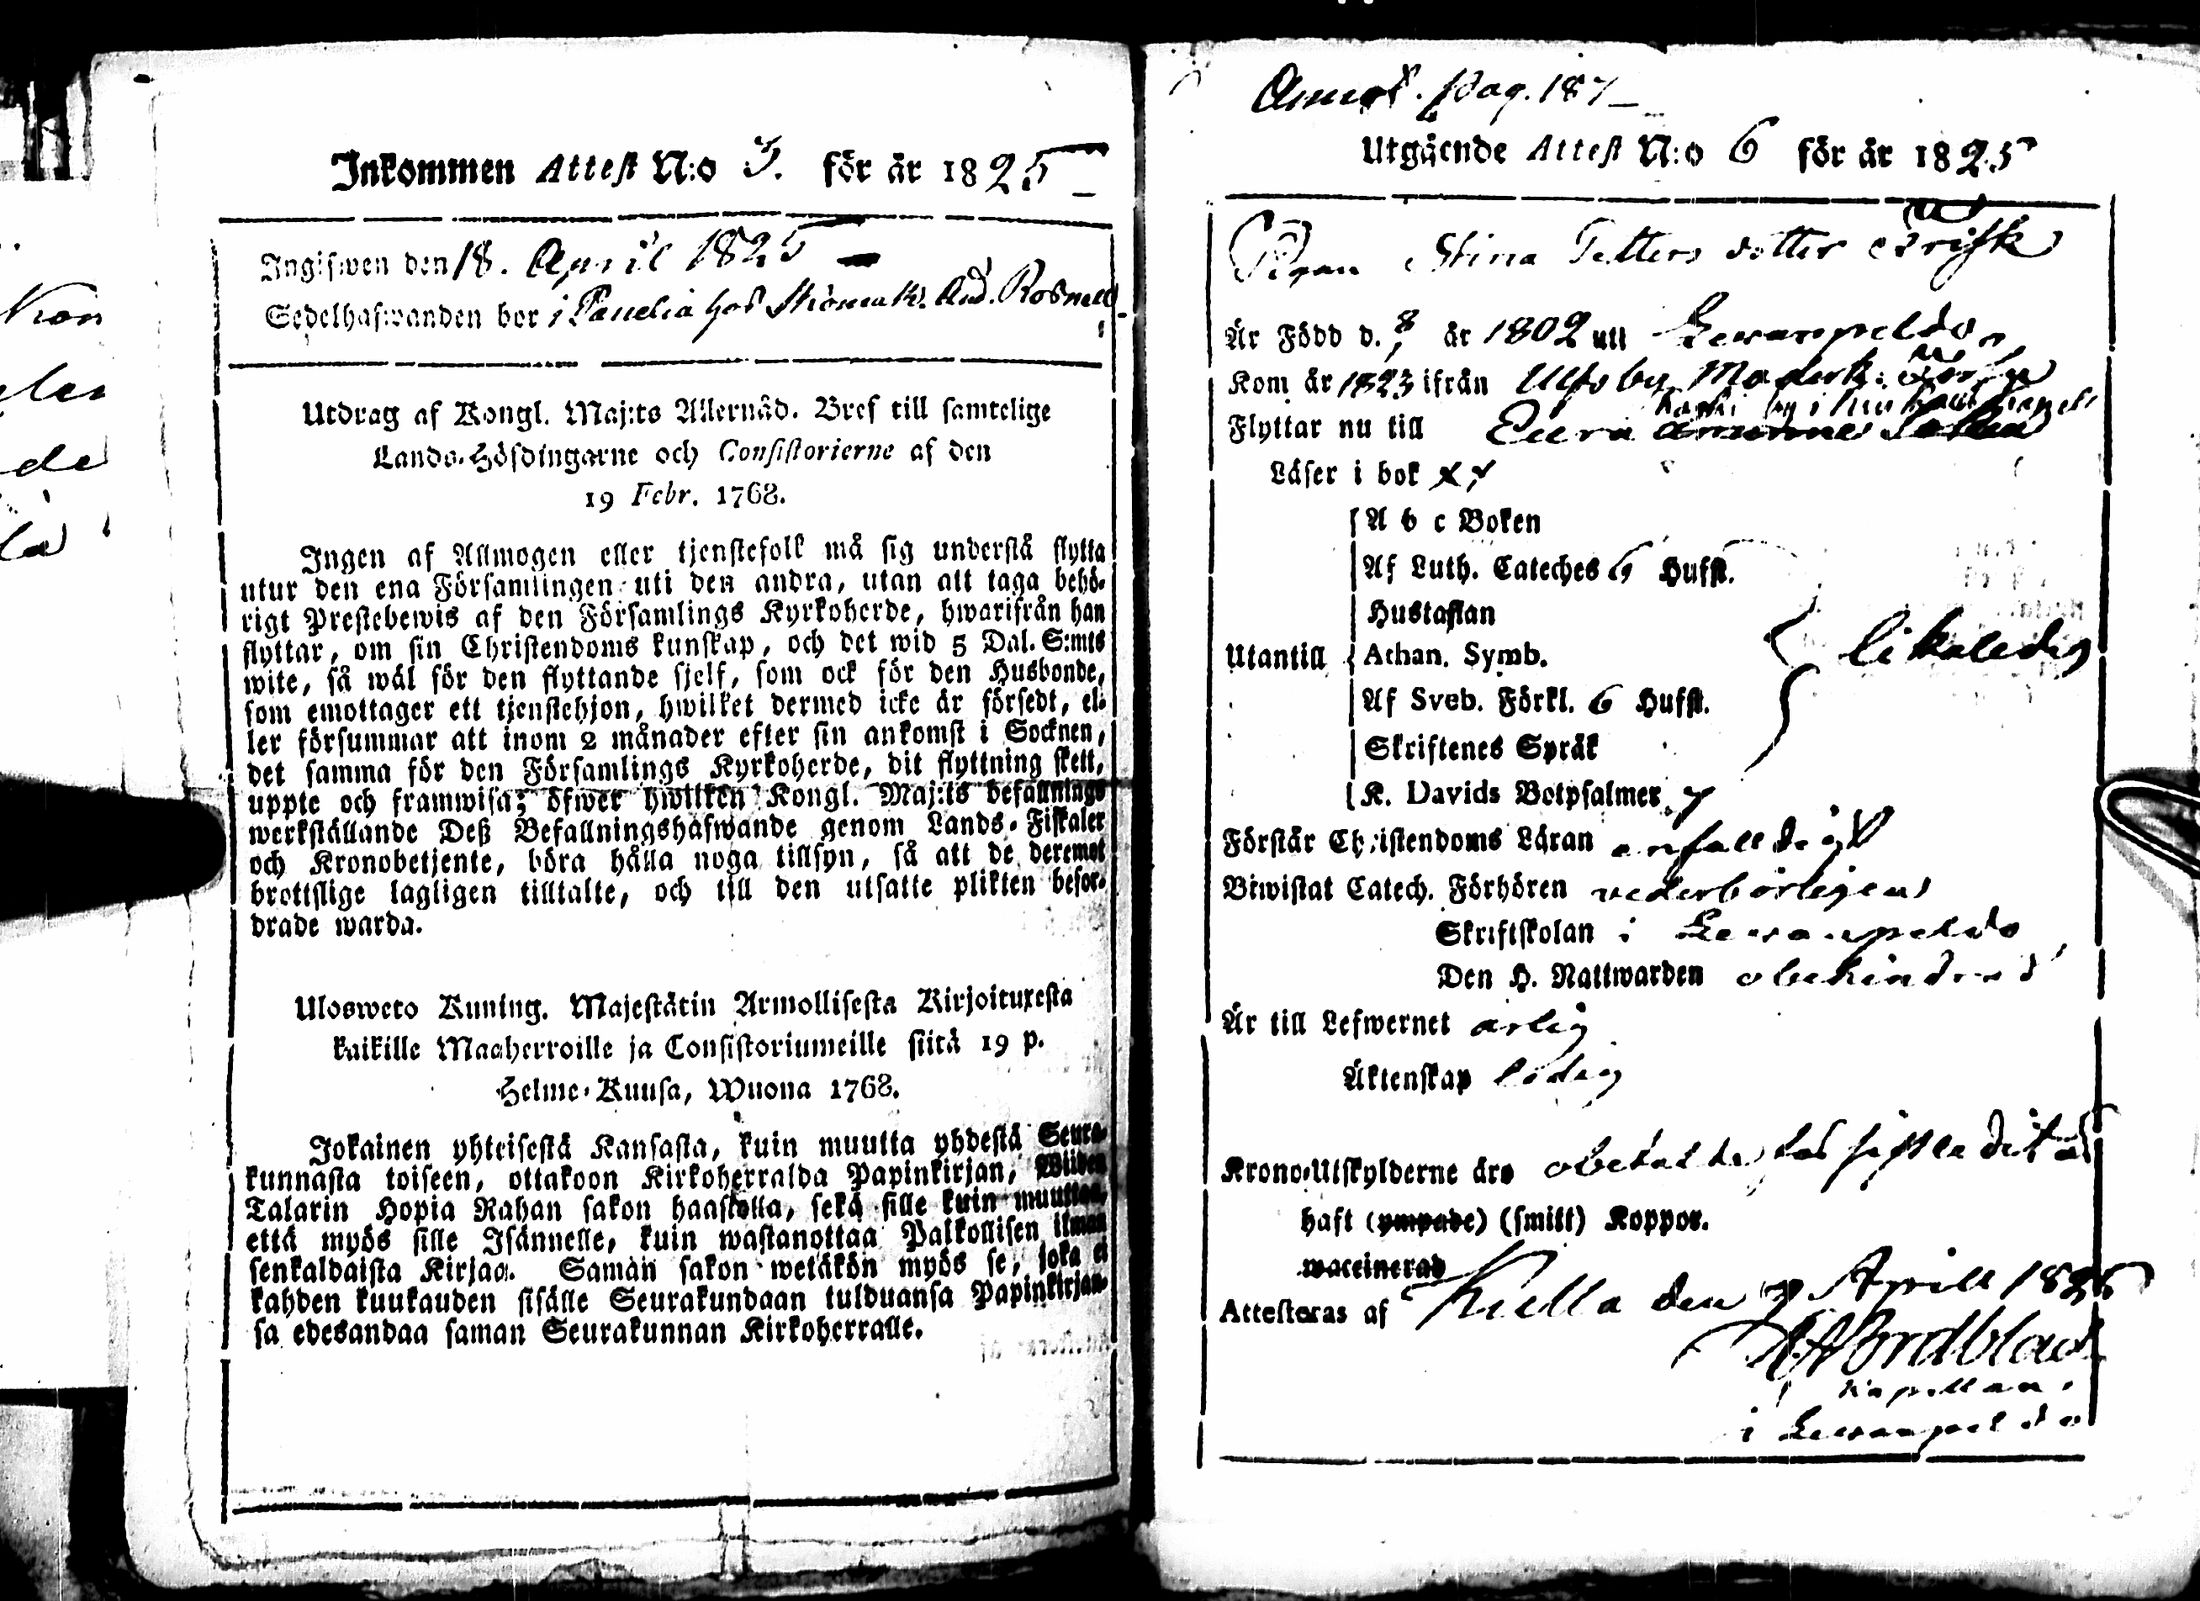 Inkommen Attest N:o 3. för år 1825
Ingifwen den 18. April 1825
Sedelhafwanden bor i Panelia hos And. Rosnell
Utdrag af Kongl. Maj:ts Allernåd. Bref till samtelige
Lands-Höfdingarne och Consistorierne af den
19 Febr. 1768.
Ingen af Allmogen eller tjenstefolk må sig understå flytta
utur den ena Församlingen uti den andra, utan att taga behö-
rigt Prestebewis af den Församlings Kyrkoherde, hwarifrån han
flyttar, om sin Christendoms kunskap, och det wid 5 Dal. S:mts
wite, så wäl för den flyttande sjelf, som ock för den Husbonde,
som emottager ett tjenstehjon, hwilket dermed icke är försedt, el-
ler försummar att inom 2 månader efter sin ankomst i Socknen,
det samma för den Församlings Kyrkoherde, dit flyttning skett,
uppte och framwisa; öfwer hwilken Kongl. Maj:ts befallnings
werkställande Deß Befallningshafwande genom Lands-Fiskaler
och Kronobetjente, böra hålla noga tillsyn, så att de deremot
brottslige lagligen tilltalte, och till den utsatte plikten befor-
drade warda.
Ulosweto Kuning. Majestätin Armollisesta Kirjoituxesta
kaikille Maaherroille ja Consistoriumeille siitä 19 p.
Helme-Kuusa, Wuona 1768.
Jokainen yhteisestä Kansasta, kuin muutta yhdestä Seura-
kunnasta toiseen, ottakoon Kirkoherralda Papinkirjan, Wiiden
Talarin Hopia Rahan sakon haastolla, sekä sille kuin muuttaa,
että myös sille Isännelle, kuin wastanottaa Palkollisen ilman
senkaldaista Kirjaa. Samän sakon wetäkön myös se, joka ei
kahden kuukauden sisälle Seurakundaan tulduansa Papinkirjan-
sa edesandaa saman Seurakunnan Kirkoherralle.
Pag. 187
Utgående Attest N:o 6 för år 1825
Pigan Stina Petters dotter Frisk
Är Född d. 8 år 1802 uti Lewanpeldo
Kom år 1823 ifrån Ulfsby Moderk:
Flyttar nu till Eura
Läser i bok x,
A b c Boken
Af Luth. Cateches 6 Hufst.
Hustaflan
Utantill Athan. Symb. likaledes
Af Sveb. Förkl. 6 Hufst.
Skriftenes Språk
K. Davids Botpsalmer 7
Förstår Christendoms Läran enfalldigt
Biwistat Catech. Förhören vederbörligen
Skriftskolan i Lewanpeldo
Den H. Nattwarden obehindrad
Är till Lefwernet ärlig
Äktenskap ledig
Krono-Utskylderne äro obetalte
haft (ympade) (smitt) Koppor.
waccinerad
Attesteras af Kiella den 7 Aprill 1825
Nordblad
Kapellan
i Lewanpeldo